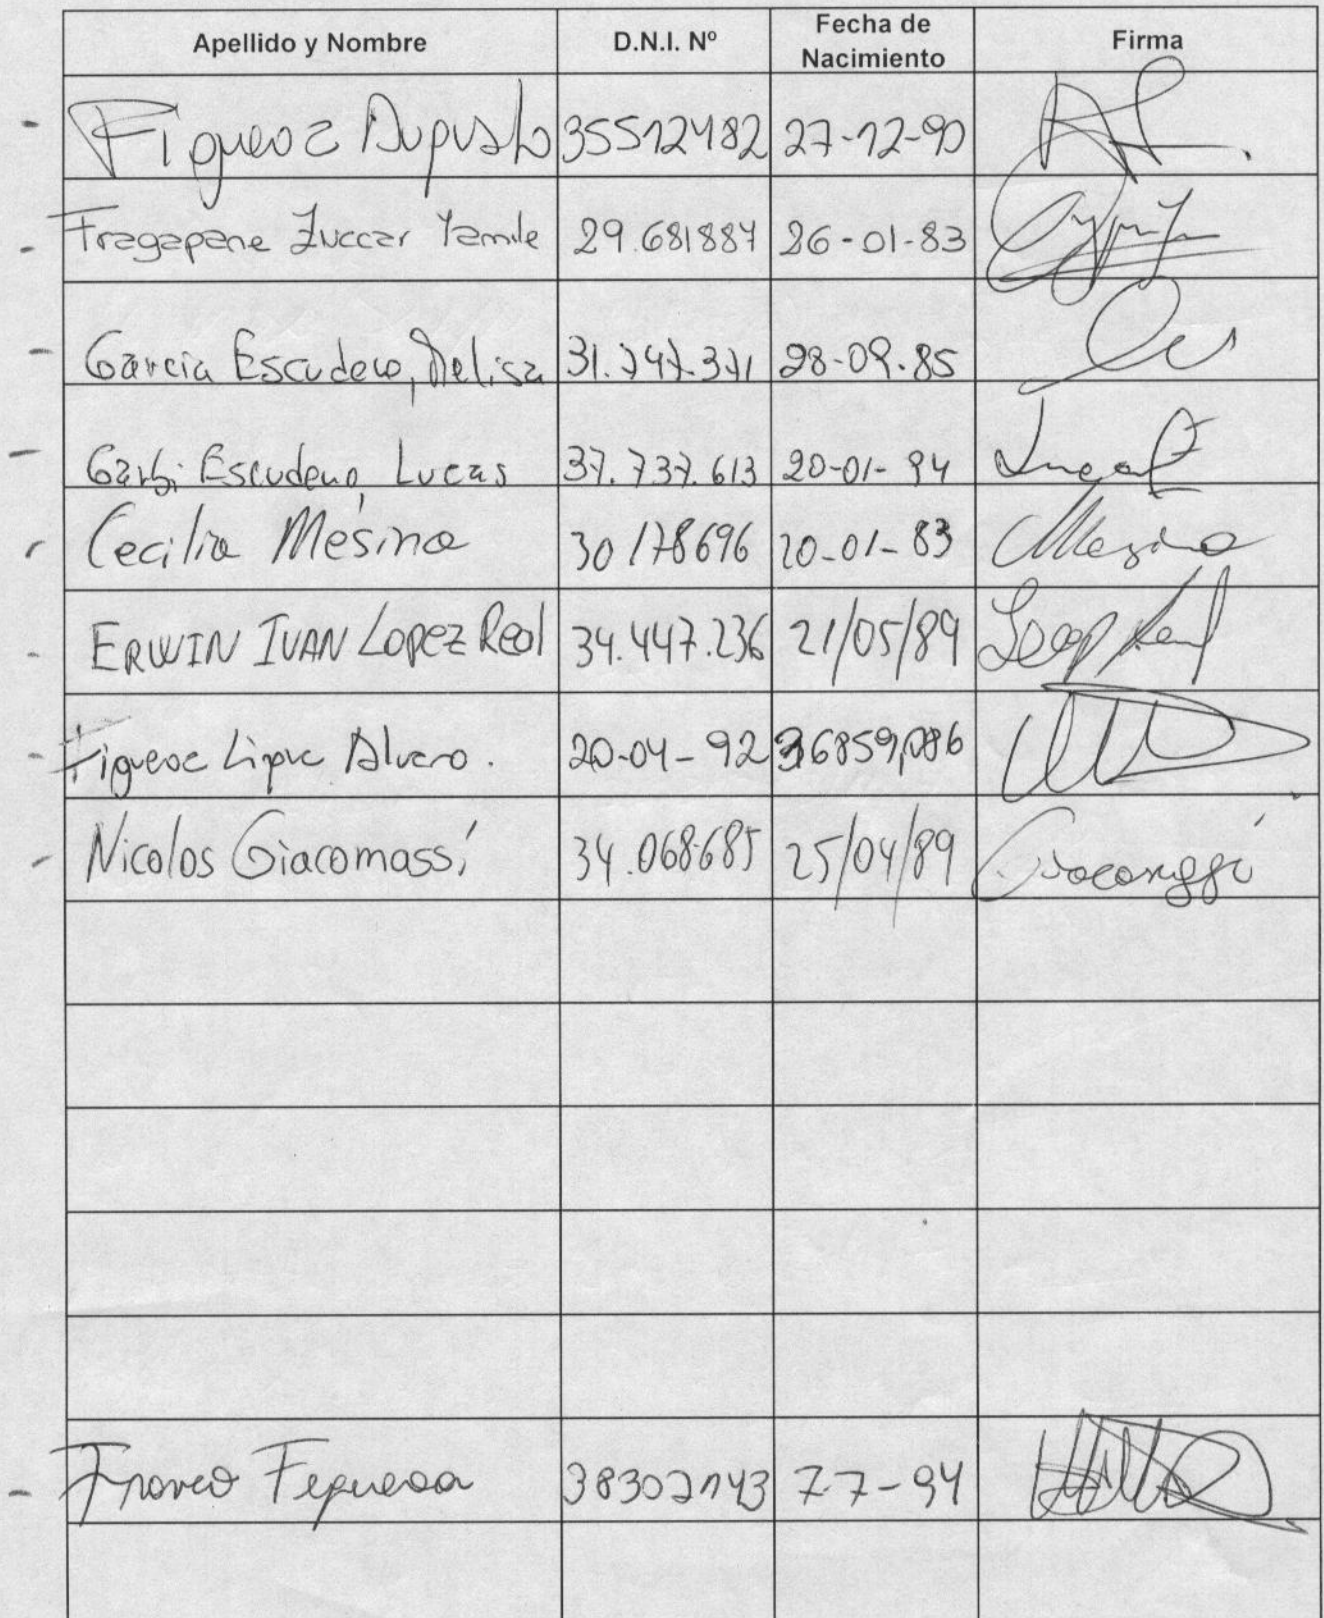 Apellido y Nombre D.N.I. Nº Fecha de Nacimiento Firma
Figueroa Augusto 35512482 27-12-90
Fragapane Zuccar Yamile 29.681887 26-01-83
García Escudero, Melisa 31.747.371 28-09-85
Garbi Escudero, Lucas 37.737.613 20-01-94 Lucas
Cecilia Mesina 30178696 20-01-83 CMesina
ERWIN IVAN LOPEZ Real 34.447.236 21/05/89 Lopez Real
Figueroa Alvaro. 20-04-92 36859,086
Nicolas Giacomassi 34.068.685 25/04/89 Giacomassi
Franco Figueroa 38302143 7-7-94